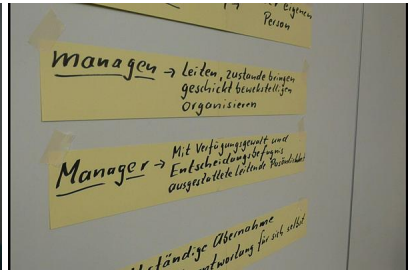 eigenen
Person
managen → Leiten, zustande bringen
geschickt bewerkstelligen
organisieren
Manager → Mit Verfügungsgewalt und
Entscheidungsbefugnis
ausgestattete leitende Persönlichkeit
ständige Übernahme
antwortung für sich selbst